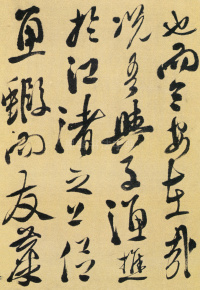 也而今安在哉
況吾與子漁樵
於江渚之上侶
魚鰕而友麋